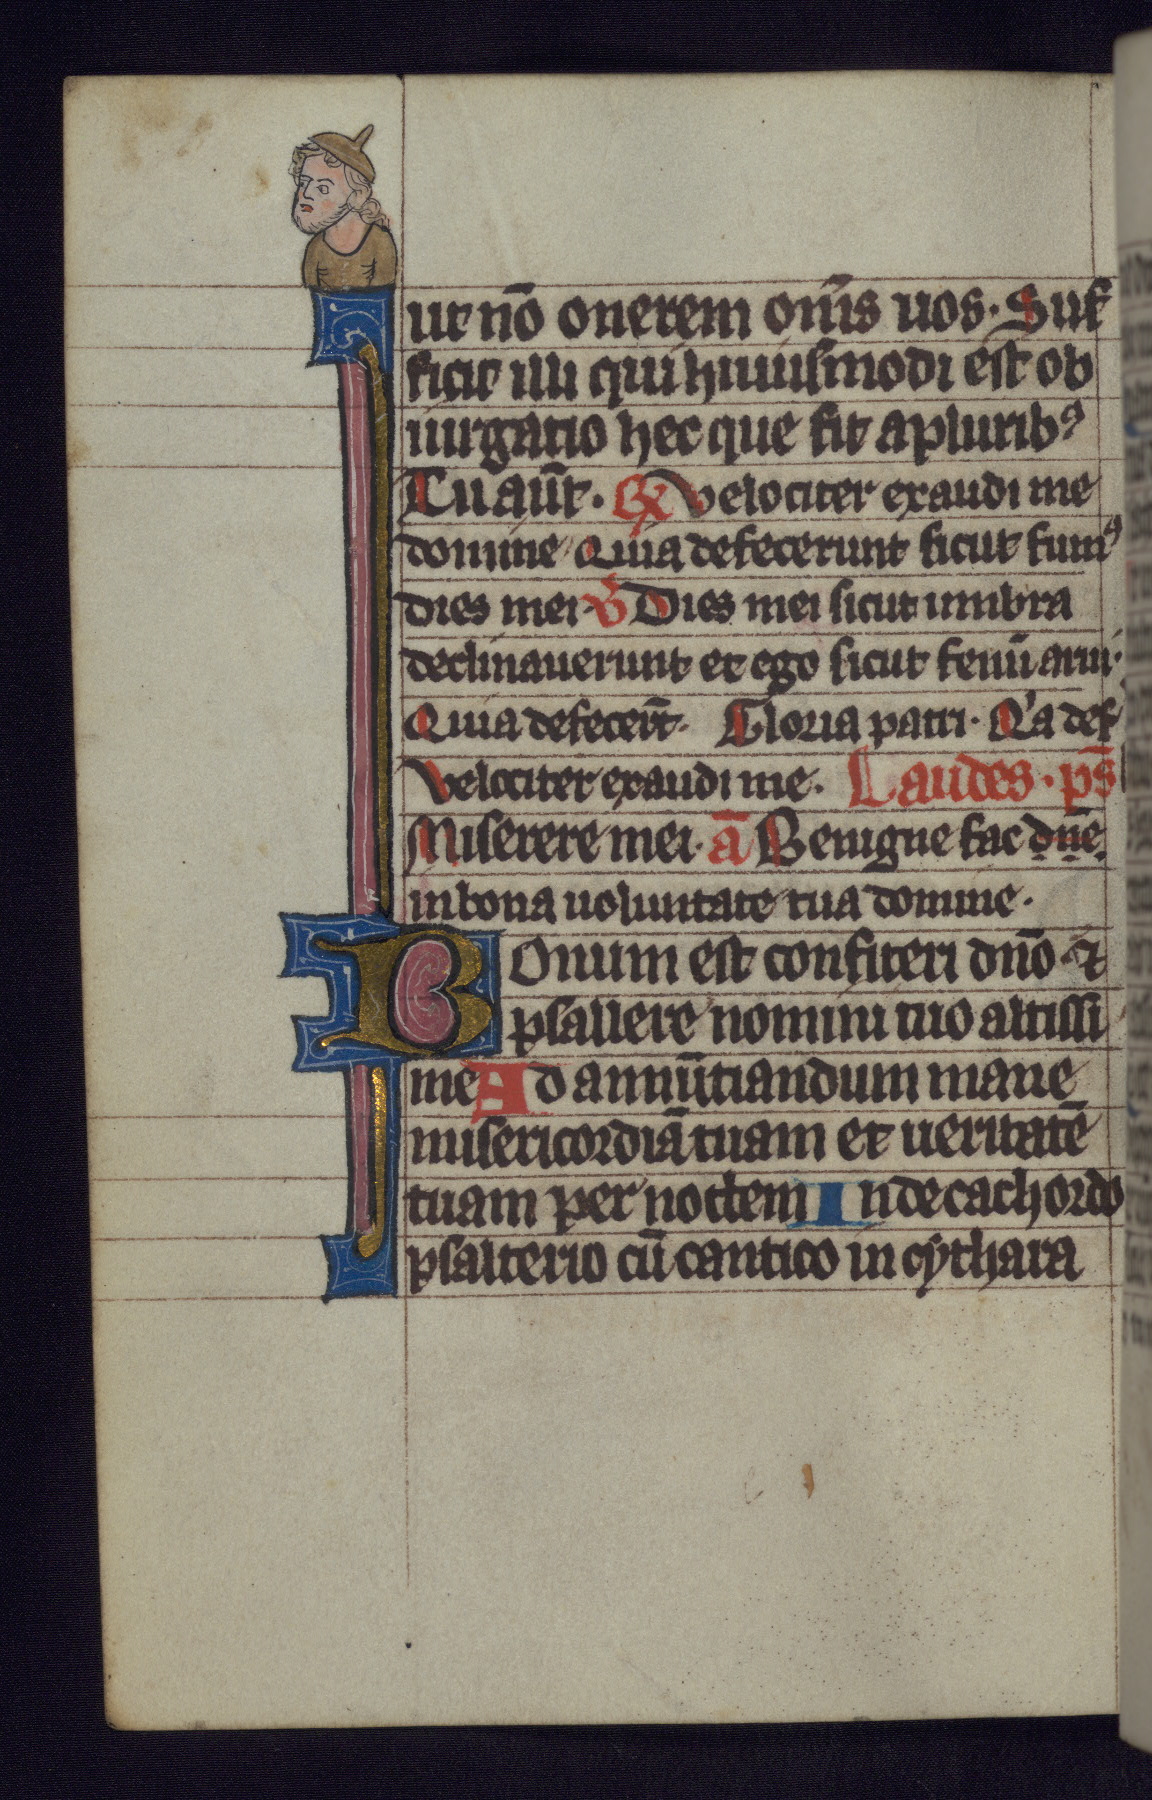 ut nō onerem om̄is uos. Suf
ficit illi qui huiusmodi est ob
iurgatio hec que fit a pluribꝰ
Tu aūt. R̷ Velociter exaudi me
domine Quia defecerunt sicut fumꝰ
dies mei V̄ Dies mei sicut umbra
declinauerunt et ego sicut fenū arui.
Quia defecer̄t. Gloria patri. Qͥa def
Velociter exaudi me. Laudes. ps̄
Miserere mei. ā Benigne fac dn̄e
in bona uoluntate tua domine.
Bonum est confiteri dn̄o et
psallere nomini tuo altissi
me Ad annūtiandum mane
misericordiā tuam et ueritatē
tuam per noctem In decachordo
psalterio cū cantico in cythara